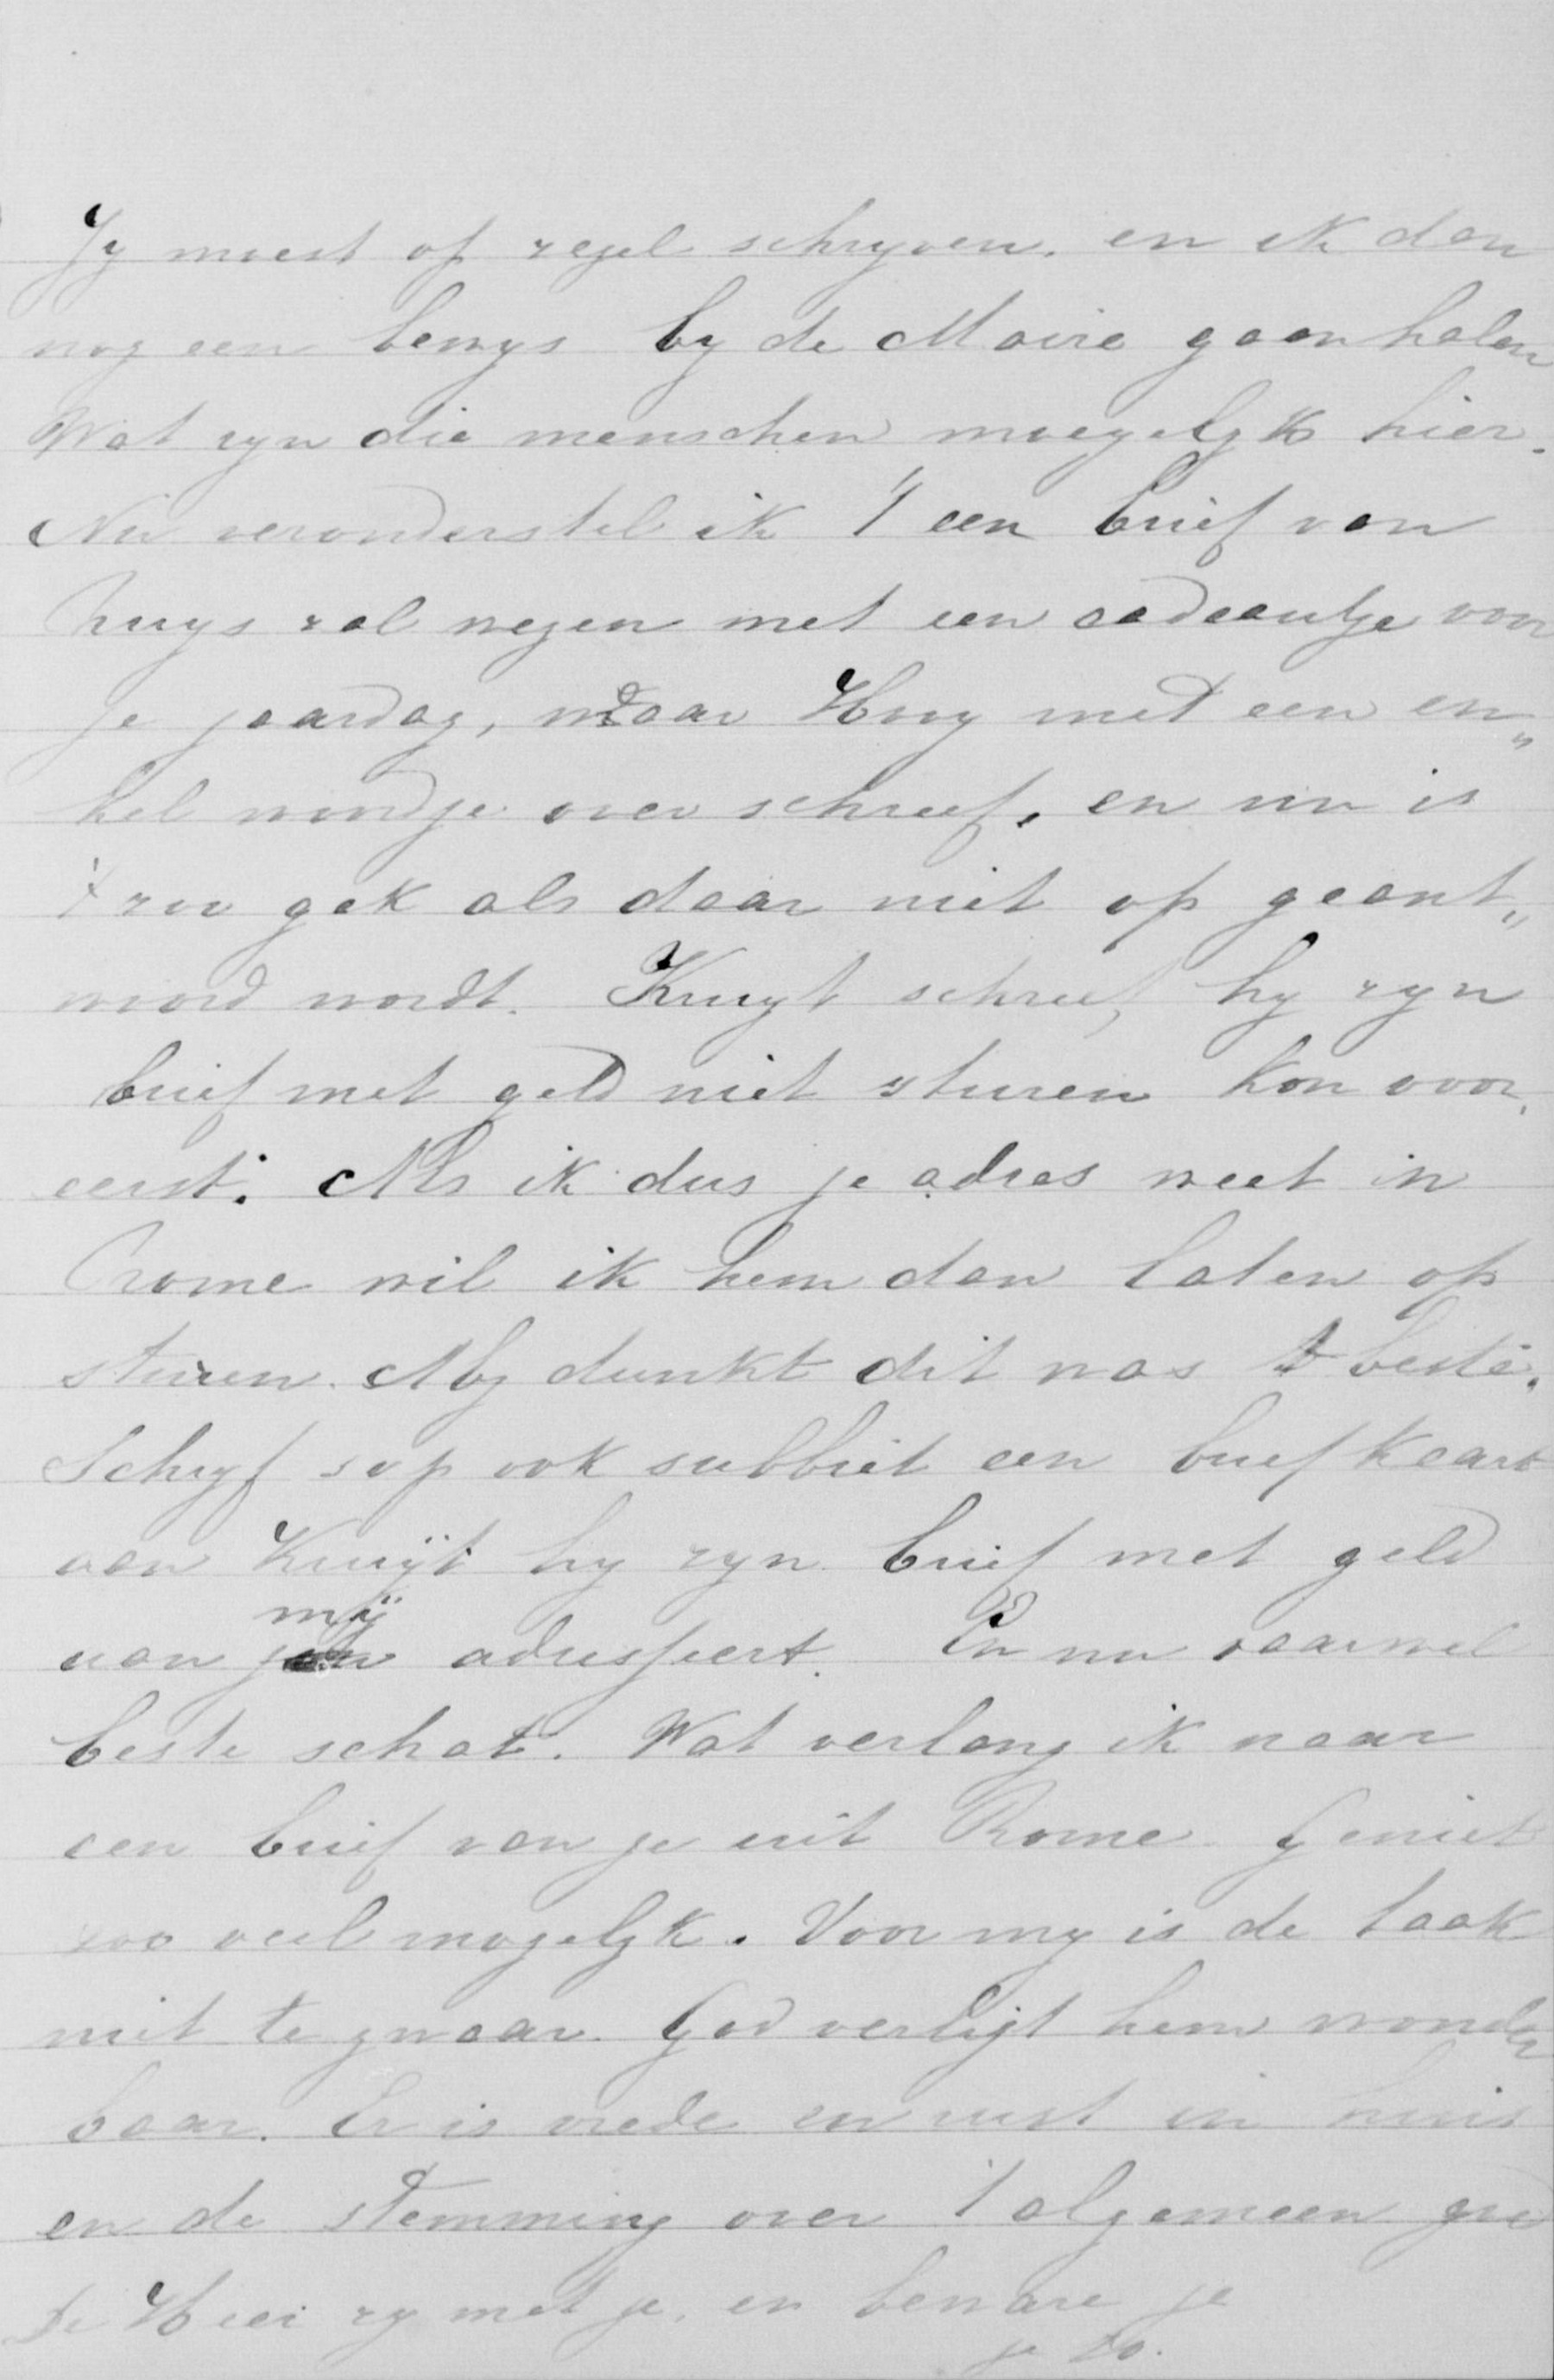 Jy moest op zegel schryven. en ik dan
nog een bewys by de Mairie gaan halen
Wat zyn die menschen moeyelyk hier.
Nu veronderstel ik 't een brief van
huys zal wezen met een cadeautje voor
je jaardag, waar Huug met een en„
kel woordje over schreef, en nu is
't zoo gek als daar niet op geant„
woord wordt. Kruyt schreef, hy zyn
brief met geld niet sturen kon voor,
eerst. Als ik dus je adres weet in
Rome wil ik hem dan laten op
sturen. My dunkt dit was 't beste.
Schryf s.v.p. ook subbiet een briefkaart
aan Kruÿt hy zyn brief met geld
aan mÿ adresseert. En nu vaarwel
beste schat. Wat verlang ik naar
een brief van je uit Rome. Geniet
zoo veel mogelyk. Voor my is de taak
niet te zwaar. God verligt hem wonder
baar. Er is vrede en rust in huis
en de stemming over 't algemeen goed
De Heer zy met je, en beware je
je To.